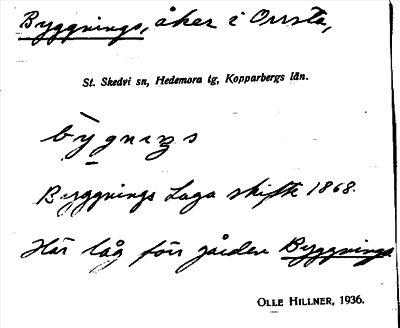 Byggnings, åker i Orrsta,
St. Skedvi sn, Hedemora tg, Kopparbergs län.
Byggnings Laga skifte 1868.
Här låg förr gården Byggnings
OLLE HILLNER, 1936.